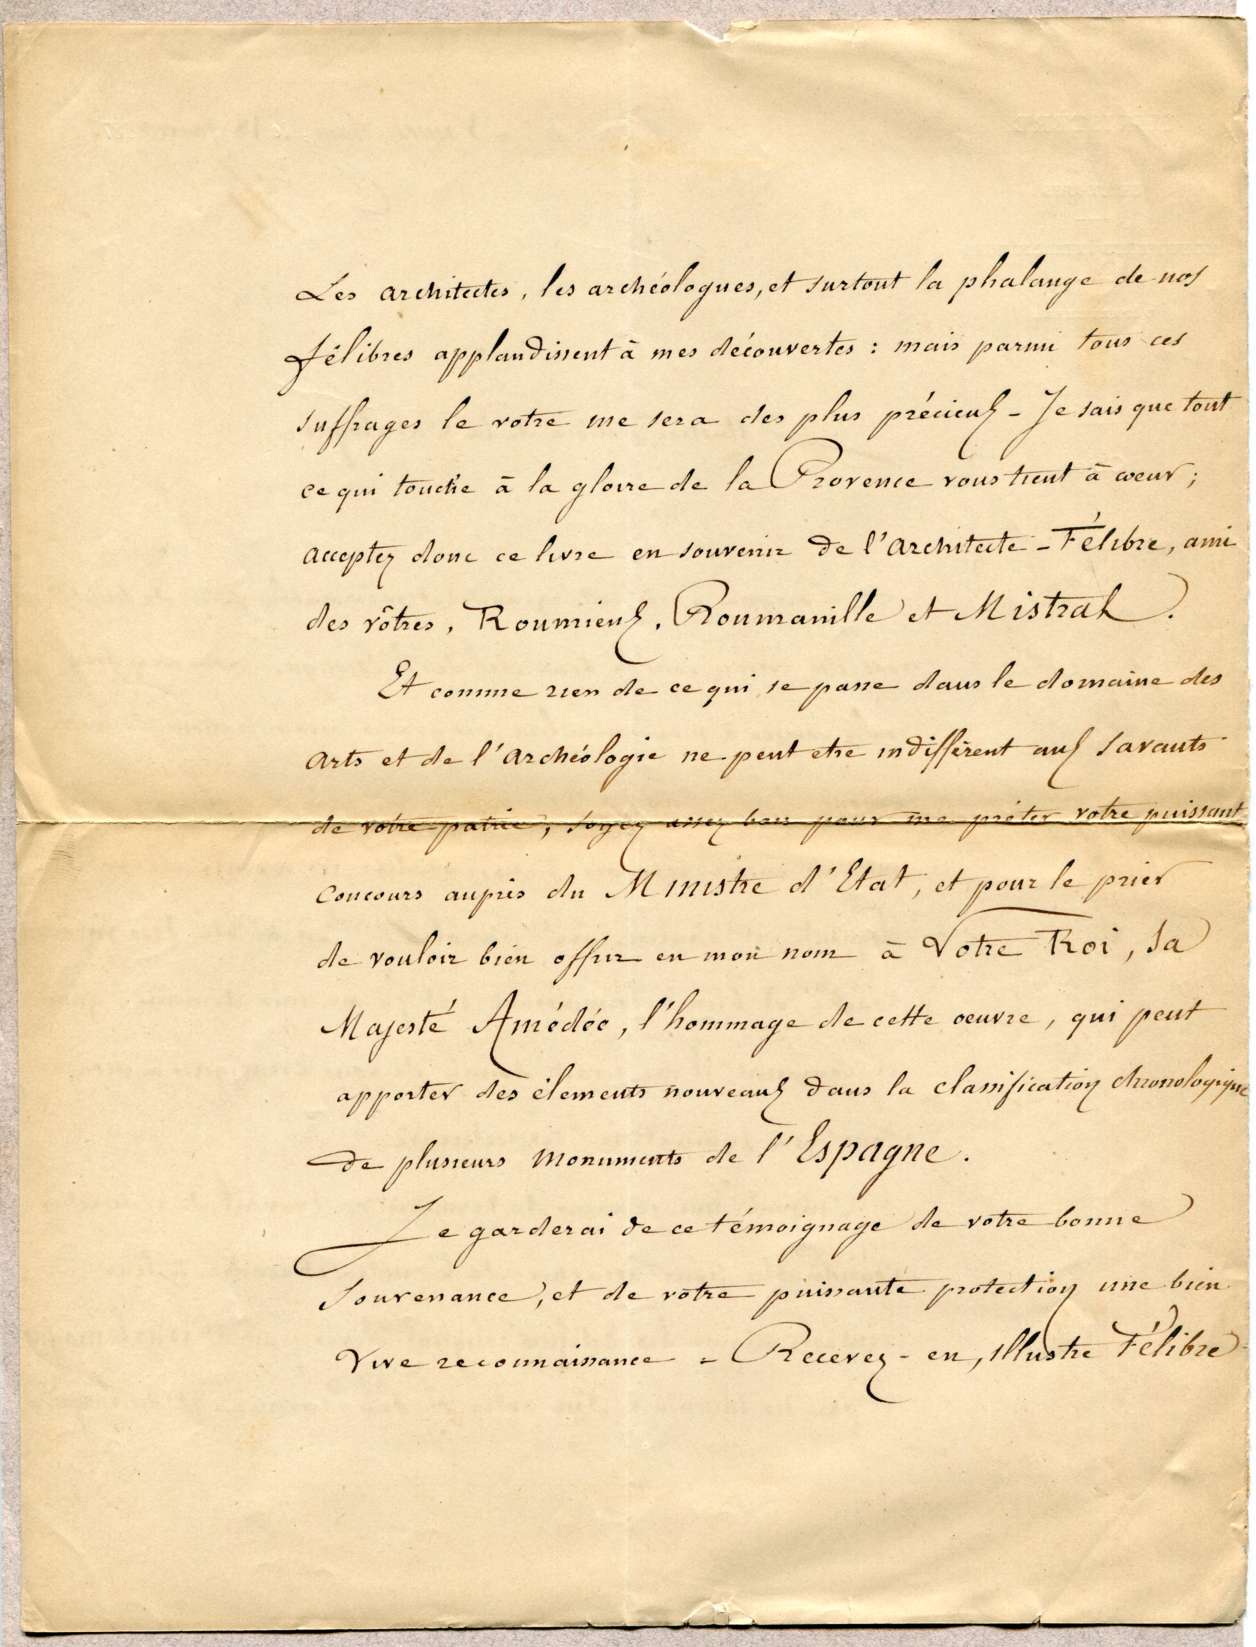 Les architectes, les archéologues, et surtout la phalange de nos
félibres applaudissent à mes découvertes : mais parmi tous ces
suffrages le votre me sera des plus précieux - Je sais que tout
ce qui touche à la gloire de la Provence vous tient à cœur ;
acceptez donc ce livre en souvenir de l'architecte - Félibre, ami
des vôtres, Roumieux, Roumanille et Mistral.
Et comme rien de ce qui se passe dans le domaine des
arts et de l'archéologie ne peut etre indifférent aux savants
de votre patrie, soyez assez bon pour me prêter votre puissant
concours auprès du Ministre d'Etat, et pour le prier
de vouloir bien offrir en mon nom à Votre Roi, Sa
Majesté Amédée, l'hommage de cette oeuvre, qui peut
apporter des élements nouveaux dans la classification chronologique
de plusieurs monuments de l'Espagne.
Je garderai de ce témoignage de votre bonne
souvenance, et de votre puissante protection une bien
vive reconnaissance - Recevez - en, illustre Félibre